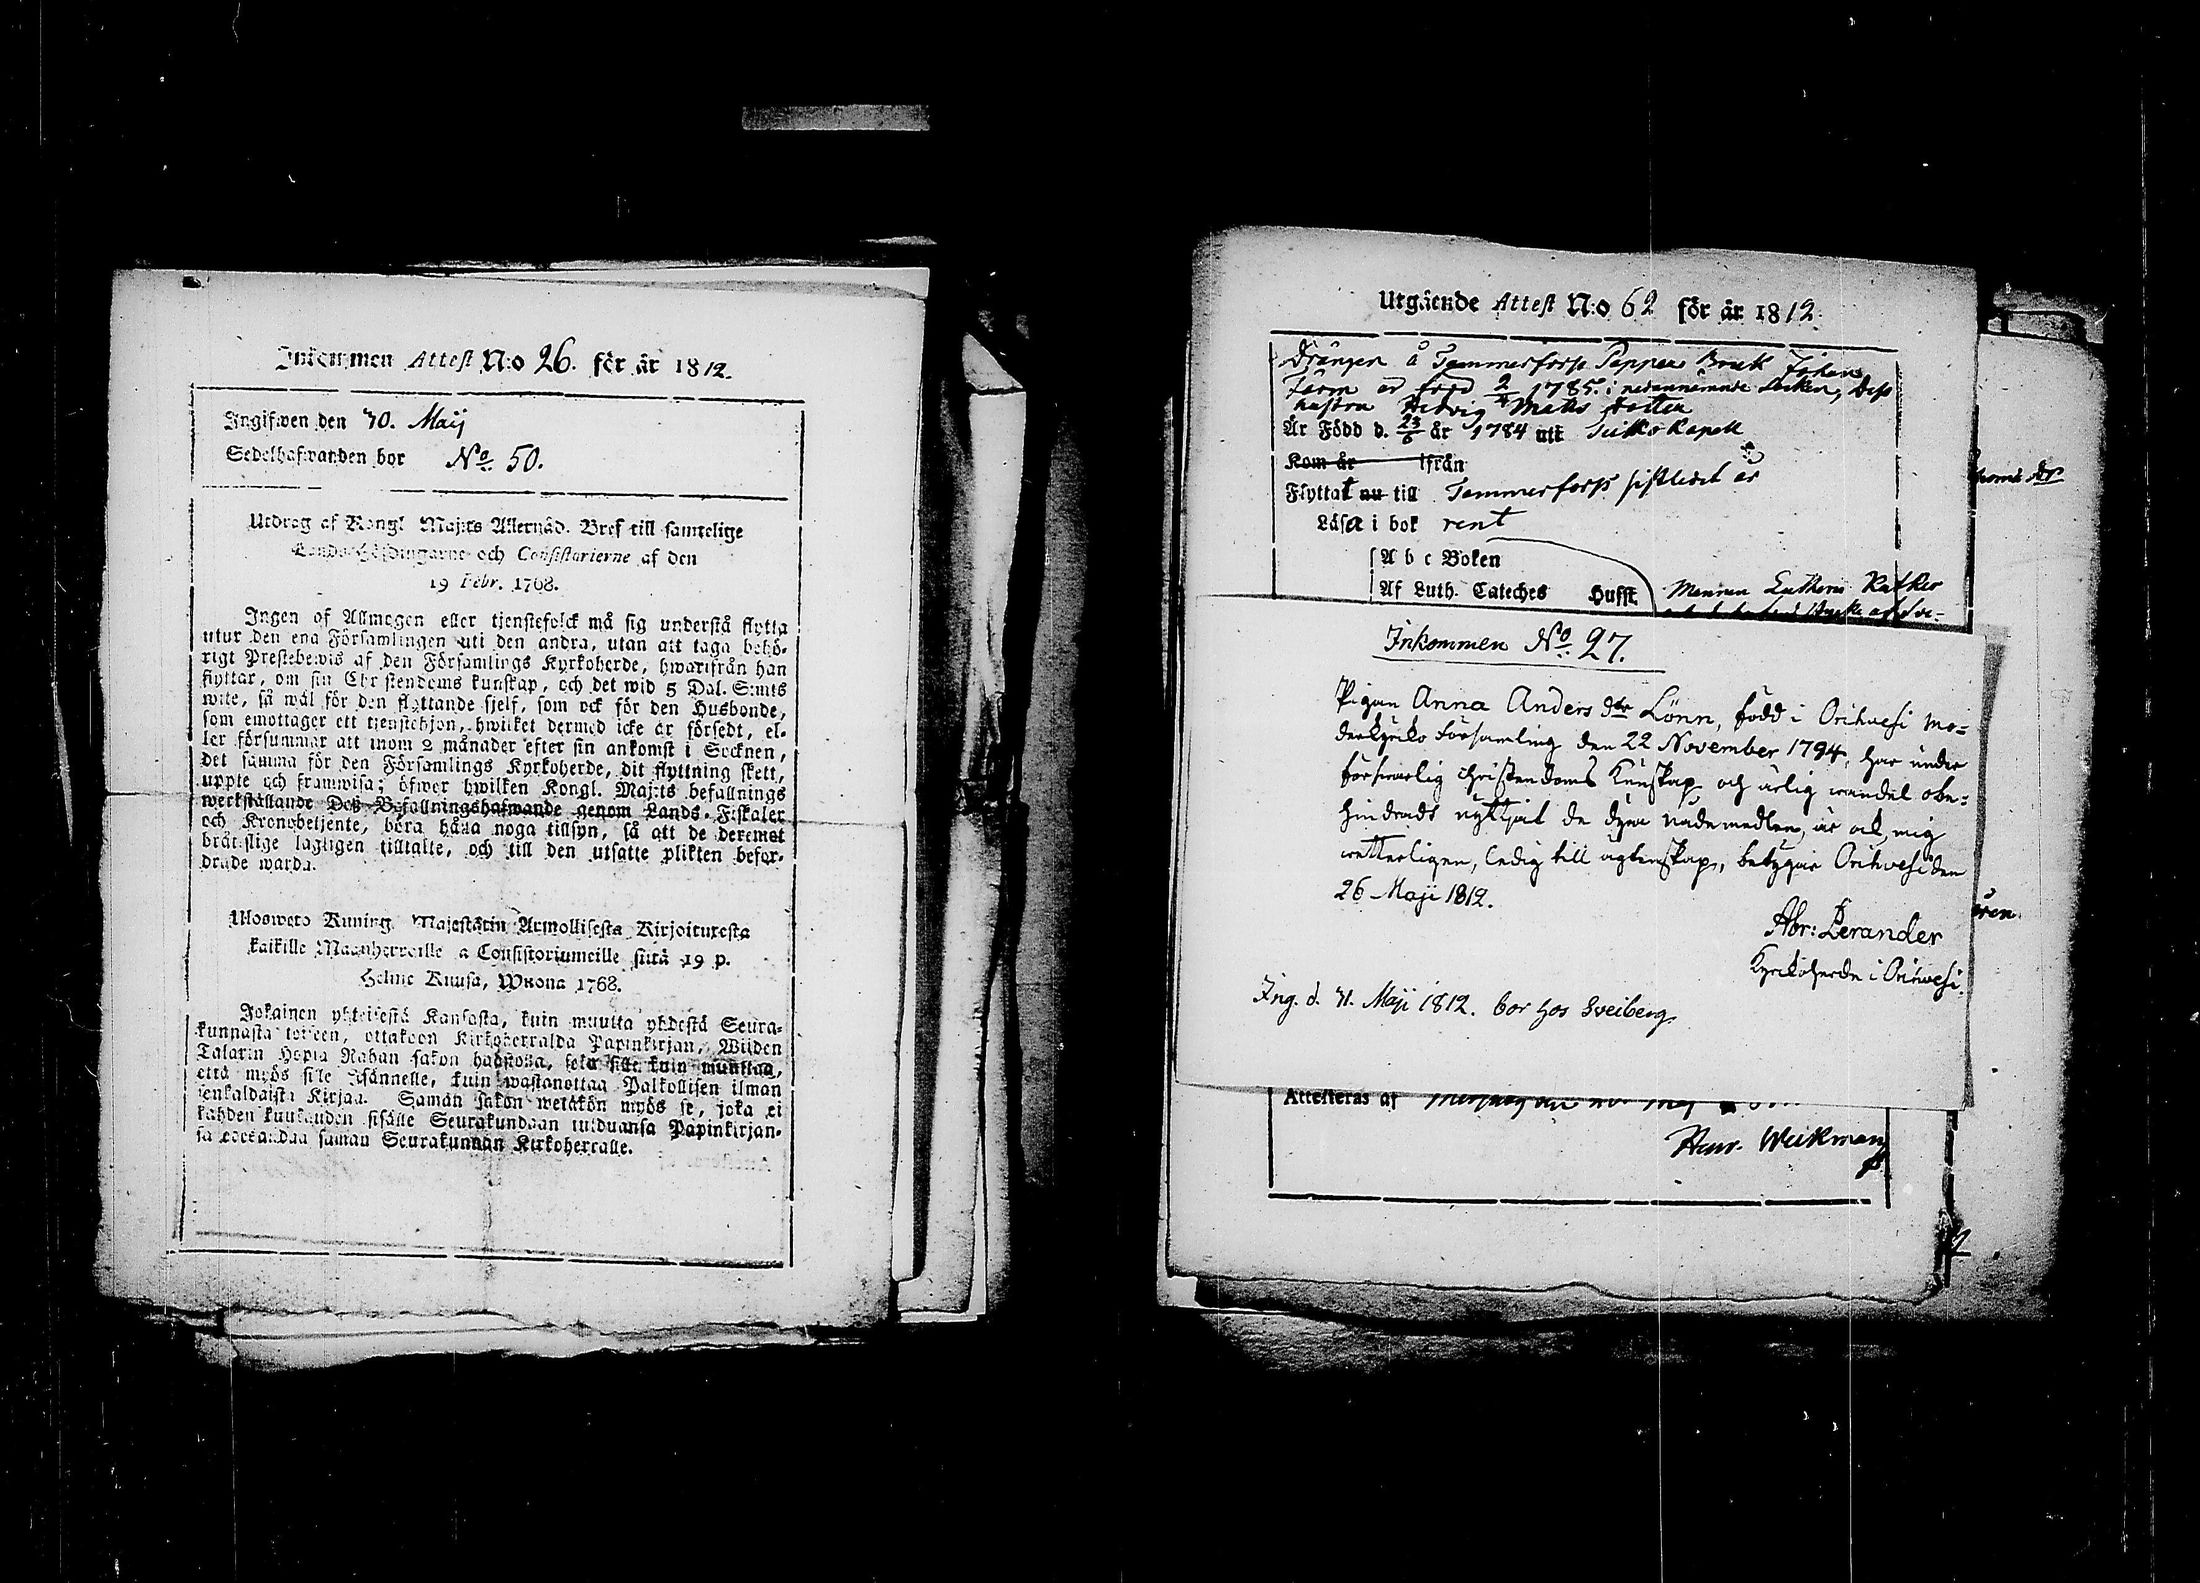 Inkommen Attest N:o 26. för år 1812.
Ingifwen den 30. Maij
Sedelhafwanden bor No. 50.
Utdrag af Kongl Maj:ts Allernåd. Bref till samtelige
Lands-Höfdingarne och Consistorierne af den
19 Febr. 1768.
Ingen af Allmogen eller tjenstefolck må sig understå flytta
utur den ena Församlingen uti den andra, utan att taga behö-
rigt Prestebewis af den Församlings Kyrkoherde, hwarifrån han
flyttar, om sin Christendoms kunskap, och det wid 5 Dal. S:mts
wite, så wäl för den flyttande sjelf, som ock för den Husbonde,
som emottager ett tjenstehjon, hwilket dermed icke är försedt, el-
ler försummar att inom 2 månader efter sin ankomst i Socknen,
det samma för den Församlings Kyrkoherde, dit flyttning skett,
uppte och framwisa; öfwer hwilken Kongl. Maj:ts befallnings
werkställande Deß Befallningshafwande genom Lands-Fiskaler
och Kronobetjente, böra hålla noga tillsyn, så att de deremot
bråtslige lagligen tilltalte, och till den utsatte plikten befor-
drade warda.
Ulosweto Kuning. Majestätin Armollisesta Kirjoituxesta
kaikille Maanherroille ja Consistoriumeille siitä 19 p.
Helme Kuusa, Wuona 1768.
Jokainen yhteisestä Kansasta, kuin muutta yhdestä Seura-
kunnasta toiseen, ottakoon Kirkoherralda Papinkirjan, Wiiden
Talarin Hopia Rahan sakon haastolla, seka sille kuin muuttaa,
että myös sille Isännelle, kuin wastanottaa Palkollisen ilman
senkaldaista Kirjaa. Saman sakon wetäkön myös se, joka ei
kahden kuukauden sisälle Seurakundaan tulduansa Papinkirjan-
sa edesandaa saman Seurakunnan Kirkoherralle.
Utgående Attest N:o 62 för år 1812.
Drängen å Tammerfors Papper Bruk Johan
född 1785 i nedannämnde Socken, Deß
hustru Hedvig Matts dotter
Är Född d. 23/6 år 1784 uti Kapell
Kom år ifrån
Flyttat nu till Tammerfors sistledet år
Läsa i bok rent
A b c Boken
Af Luth. Cateches Hufst. Mannen Lutheri
Inkommen No. 27.
Pigan Anna Anders dtr Lönn, född i Orihvesi mo-
derkyrko församling den 22 November 1794, har under
försvarlig christendoms kunskap och ärlig wandel obe-
hindradt nyttjat de dyra nådemedlen, är ock, mig
wetterligen, ledig till ägtenskap, betygar Orihvesi den
26 Maji 1812.
Abr: Perander
Kyrkoherde i Orihvesi.
Ing. d. 31. Maji 1812. bor hos Sveiberg
Attesteras af
Henr. Weckman